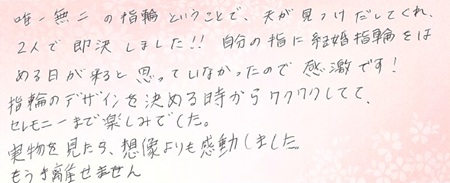 唯一無二の指輪ということで、夫が見つけだしてくれ、
2人で即決しました!! 自分の指に結婚指輪をは
める日が来ると思っていなかったので感激です!
指輪のデザインを決める時からワクワクしてて、
セレモニーまで楽しみでした。
実物を見たら、想像よりも感動しました
もうき離せません